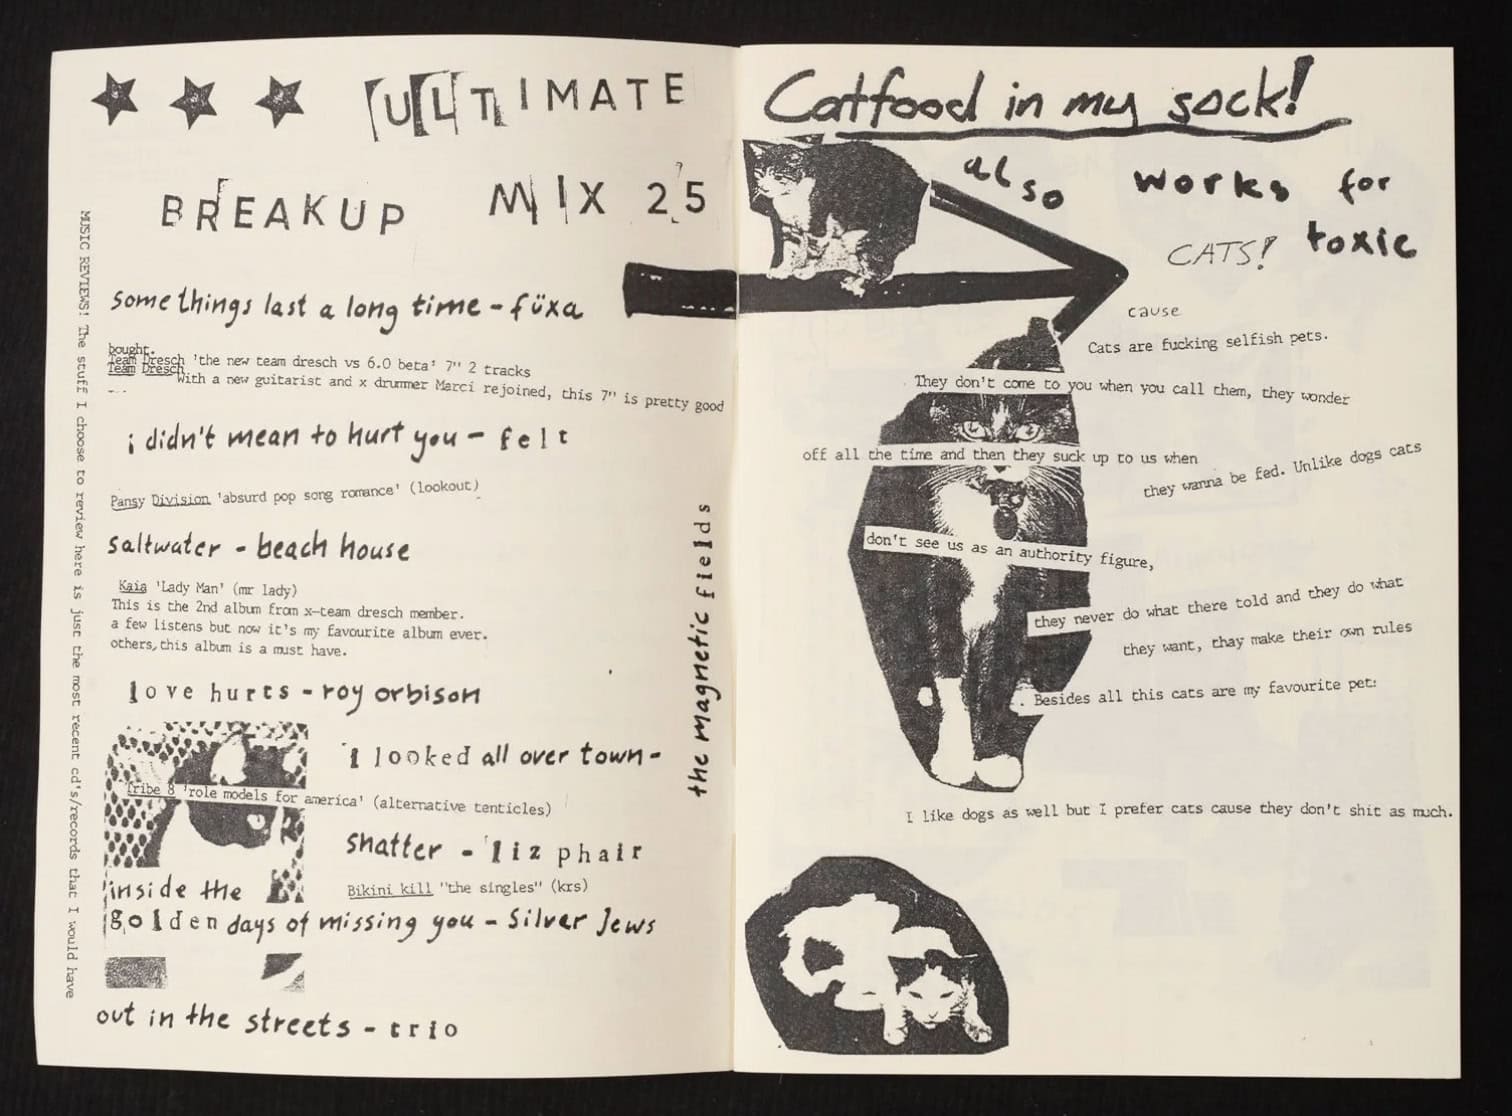 ULTIMATE
BREAKUP MIX 25
?
MUSIC REVIEWS! The stuff I choose to review here is just the most recent cd's/records that I would have
some things last a long time – füxa
bought.
Team Dresch 'the new team dresch vs 6.0 beta' 7" 2 tracks
Team Dresch
With a new guitarist and x drummer Marci rejoined, this 7" is pretty good
i didn't mean to hurt you – felt
Pansy Division 'absurd pop song romance' (lookout)
saltwater – beach house
Kaia 'Lady Man' (mr lady)
This is the 2nd album from x-team dresch member.
a few listens but now it's my favourite album ever.
others, this album is a must have.
love hurts – roy orbison
i looked all over town –
the magnetic fields
Tribe 8 'role models for america' (alternative tenticles)
shatter – liz phair
Bikini kill "the singles" (krs)
inside the
golden days of missing you – Silver Jews
out in the streets – trio
Catfood in my sock!
also works for
toxic
CATS!
cause
Cats are fucking selfish pets.
They don't come to you when you call them, they wonder
off all the time and then they suck up to us when
they wanna be fed. Unlike dogs cats
don't see us as an authority figure,
they never do what there told and they do what
they want, thay make their own rules
. Besides all this cats are my favourite pet:
I like dogs as well but I prefer cats cause they don't shit as much.